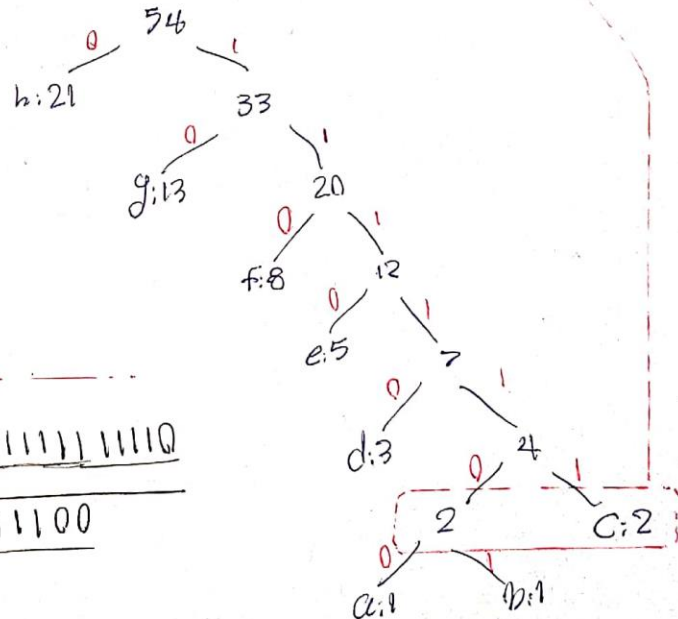 54
0 1
h:21 33
0 1
g:13 20
0 1
f:8 12
0 1
e:5 7
0 1
d:3 4
0 1
2 C:2
0 1
a:1 b:1
11111111110
11100